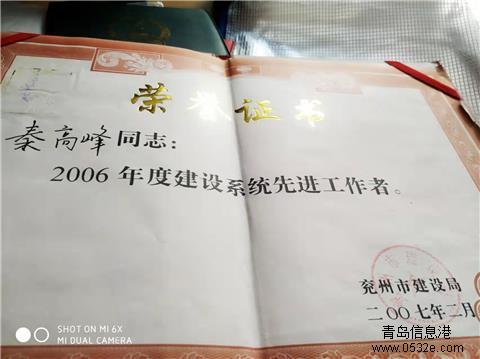 荣誉证书
秦高峰同志：
2006 年度建设系统先进工作者。
兖州市建设局
二〇〇七年二月
SHOT ON MI 6X
MI DUAL CAMERA
青岛信息港
www.0532e.com